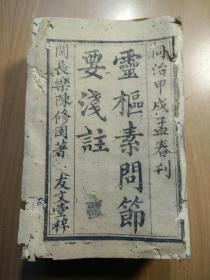 同治甲戌孟春刊
靈樞素問節
要淺註
閩長樂陳修園著
友文堂梓